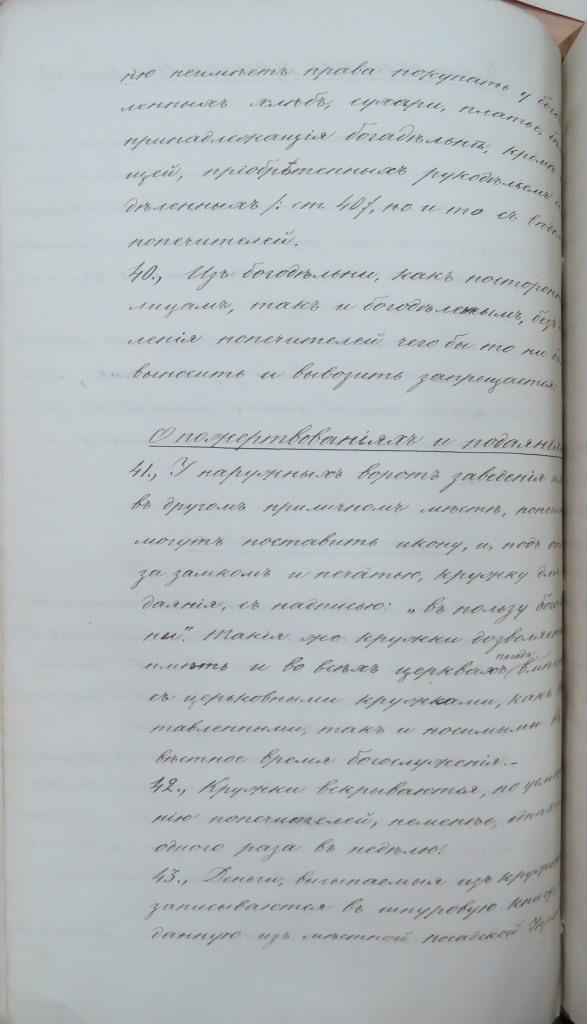 нію неимѣетъ права покупать у бога
ленныхъ хлѣбъ, сухари, платье,
принадлежащія богадѣльнѣ, кромѣ
щей, пріобрѣтенныхъ рукодѣльемъ
дѣленныхъ /: ст. 40/, но и то съ вѣдо
попечителей.
40., Изъ богодѣльни, какъ посторон
лицамъ, такъ и богодѣленымъ, безъ
ленія попечителей чего бы то ни бы
выносить и вывозить запрещается.
О пожертвованіяхъ и подаянія
41., У наружныхъ воротъ заведенія
въ другомъ приличномъ мѣстѣ, попечи
могутъ поставить икону, и, подъ
за замкомъ и печатью, кружку для
даянія, съ надписью: „въ пользу бога
ни". Такія же кружки дозволяет
имѣть и во всѣхъ церквахъ посада вмѣс
съ церковными кружками, какъ
тавленными, такъ и носимыми въ
вѣстное время богослуженія.-
42., Кружки вскрываются, по усмо
нію попечителей, неменѣе, однако
одного раза въ недѣлю.
43., Деньги, высыпаемыя изъ кружекъ
записываются въ шнуровую книгу,
данную изъ мѣстной посадской Упр